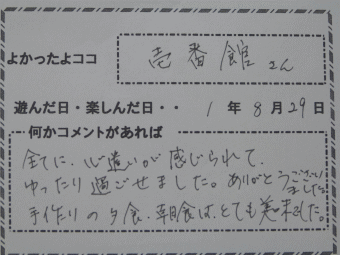 よかったよココ 壱番館さん
遊んだ日・楽しんだ日・・ 1年8月29日
何かコメントがあれば
全てに、心遣いが感じられて、
ゆったり過ごせました。ありがとうございました。
手作りの夕食、朝食は、とても美味でした。